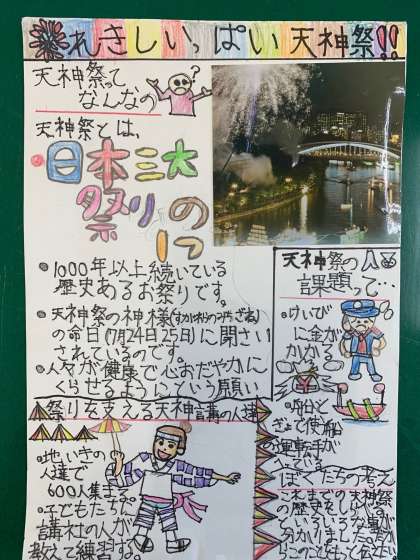 れきしいっぱい天神祭!!
天神祭って
なんなの
?
天神祭とは、
日本三大
祭りの
1つ
1000年以上続いている
歴史あるお祭りです。
天神祭の神様(すがわらのみちざね)
の命日(7月24日25日)に開さい
されているのです。
人々が健康で心おだやかに
くらせるようにという願い
天神祭の
課題って…
けいび
に金が
かかる
船と
ぎょで使う船
の運転手が
へっている
祭りを支える天神講の人達
地いきの
人達で
600人集まる。
子どもたちも
講社の人が
教えて練習する。
ぼくたちの考え
これまでの天神祭
の歴史をしり
いろいろな事が
分かりました。